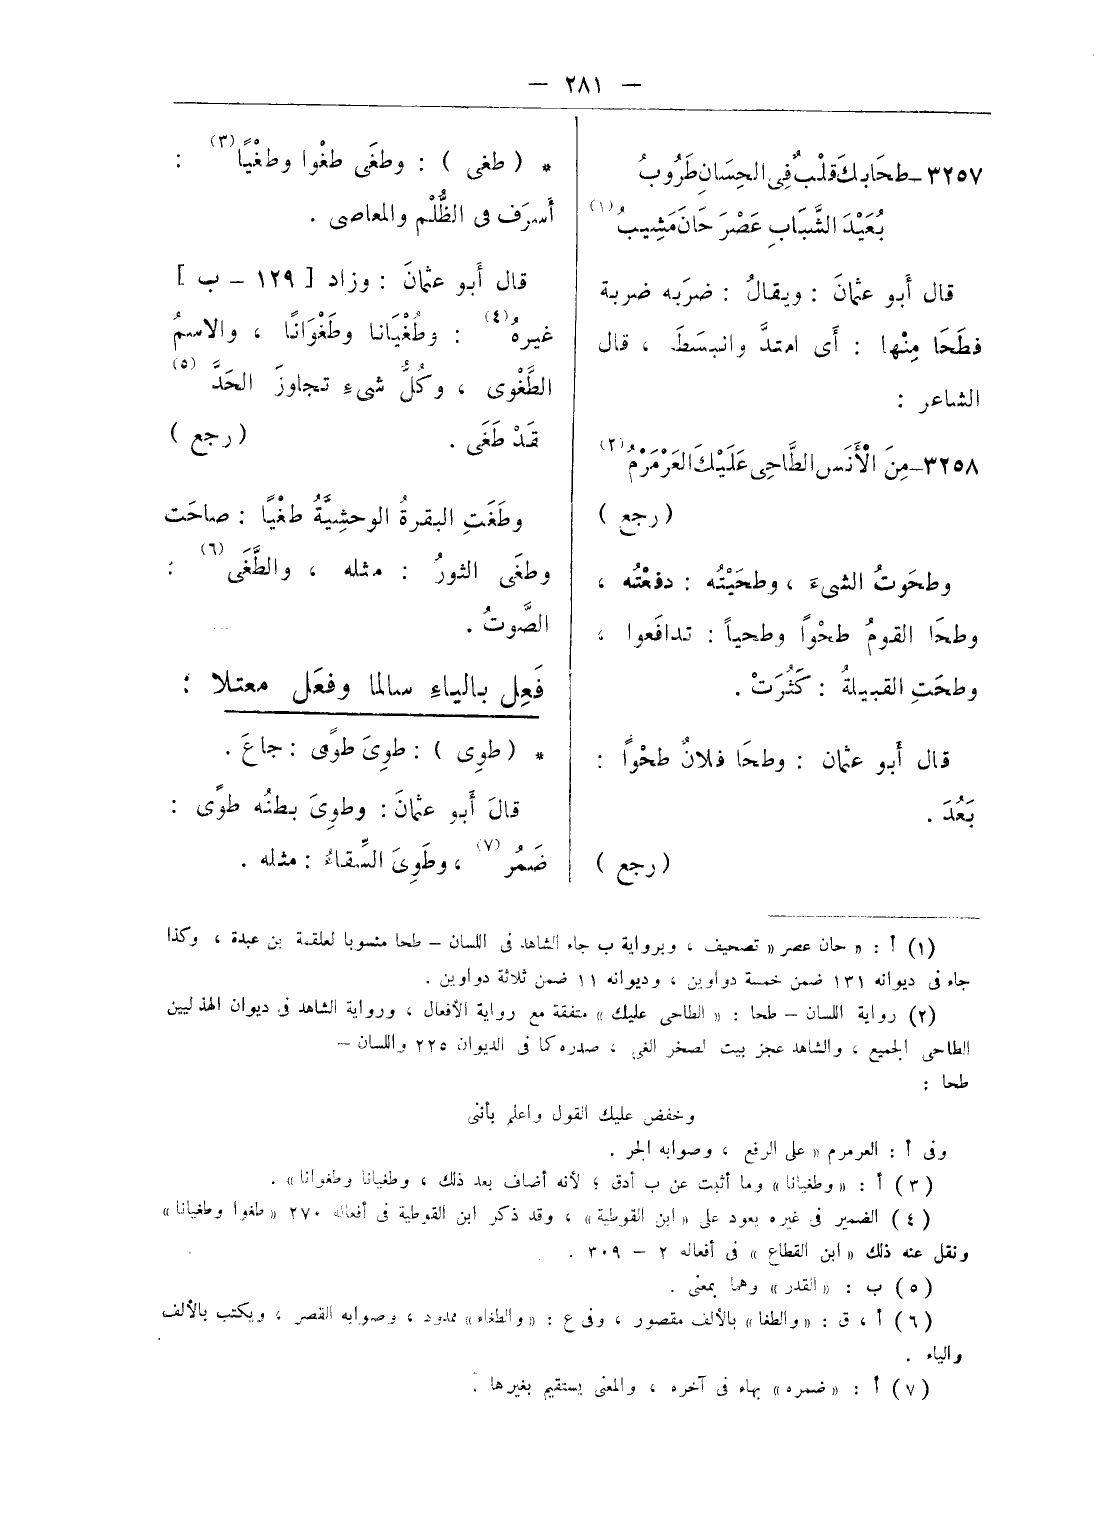 — ٢٨١ —
٣٢٥٧ـ طحَابكَ قلْبٌ فِى الحِسَانِ طَرُوبُ
بُعَيْدَ الشَّبَابِ عَصْرَ حَانَ مَشِيبُ (١)
قال أَبو عثمانَ : ويقالُ : ضربَه ضربة
فطَحَا مِنْها : أَى امتدَّ وانبسَطَ ، قال
الشاعر :
٣٢٥٨ـ مِنَ الْأَنَسِ الطَّاحِى عَلَيْكَ العَرَمْرَمُ (٢)
( رجع )
وطحَوتُ الشىءَ ، وطحَيْتُه : دفعْتُه ،
وطحَا القومُ طحْوًا وطحياً : تدافَعوا ،
وطحَتِ القبيلةُ : كَثُرَتْ .
قال أَبو عثمان : وطحَا فلانٌ طحْواً :
بَعُدَ .
( رجع )
* ( طغى ) : وطغَى طغْوا وطغْيًا (٣) :
أَسرَف فى الظُّلْم والمعاصى .
قال أَبو عثمانَ : وزاد [ ١٢٩ ـ ب ]
غيرهُ (٤) : وطُغْيَانا وطَغْوَانًا ، والاسمُ
الطَّغْوى ، وكُلُّ شىءٍ تجاوزَ الحَدَّ (٥)
قَدْ طَغَى . ( رجع )
وطَغَتِ البقرةُ الوحشِيَّةُ طغْيًا : صاحَت
وطغَى الثورُ : مثله ، والطَّغَى (٦) :
الصَّوتُ .
فَعِل بالياءِ سالما وفعَل معتلا :
* ( طوِى ) : طوِىَ طوًى : جاعَ .
قالَ أَبو عثمانَ : وطوِىَ بطنُه طوًى :
ضَمُر (٧) ، وطَوِىَ السِّقاءُ : مثله .
(١) أ : « حان عصر « تصحيف ، وبرواية ب جاء الشاهد فى اللسان – طحا منسوبا لعلقمة بن عبدة ، وكذا
جاء فى ديوانه ١٣١ ضمن خمسة دواوين ، وديوانه ١١ ضمن ثلاثة دواوين .
(٢) رواية اللسان – طحا : « الطاحى عليك » متفقة مع رواية الأفعال ، ورواية الشاهد فى ديوان الهذليين
الطاحى الجميع ، والشاهد عجز بيت لصخر الغى ، صدره كما فى الديوان ٢٢٥ واللسان –
طحا :
وخفض عليك القول واعلم بأننى
وفى أ : العرمرم « على الرفع ، وصوابه الجر .
(٣) أ : « وطغيانا » وما أثبت عن ب أدق ؛ لأنه أضاف بعد ذلك ، وطغيانا وطغوانا » .
(٤) الضمير فى غيره يعود على « ابن القوطية » ، وقد ذكر ابن القوطية فى أفعاله ٢٧٠ « طغوا وطغيانا »
ونقل عنه ذلك « ابن القطاع » فى أفعاله ٢ – ٣٠٩ .
(٥) ب : « القدر » وهما بمعنى .
(٦) أ ، ق : « والطغا » بالألف مقصور ، وفى ع : « والطغاء » ممدود ، وصوابه القصر ، ويكتب بالألف
والياء .
(٧) أ : « ضمره » بهاء فى آخره ، والمعنى يستقيم بغيرها .